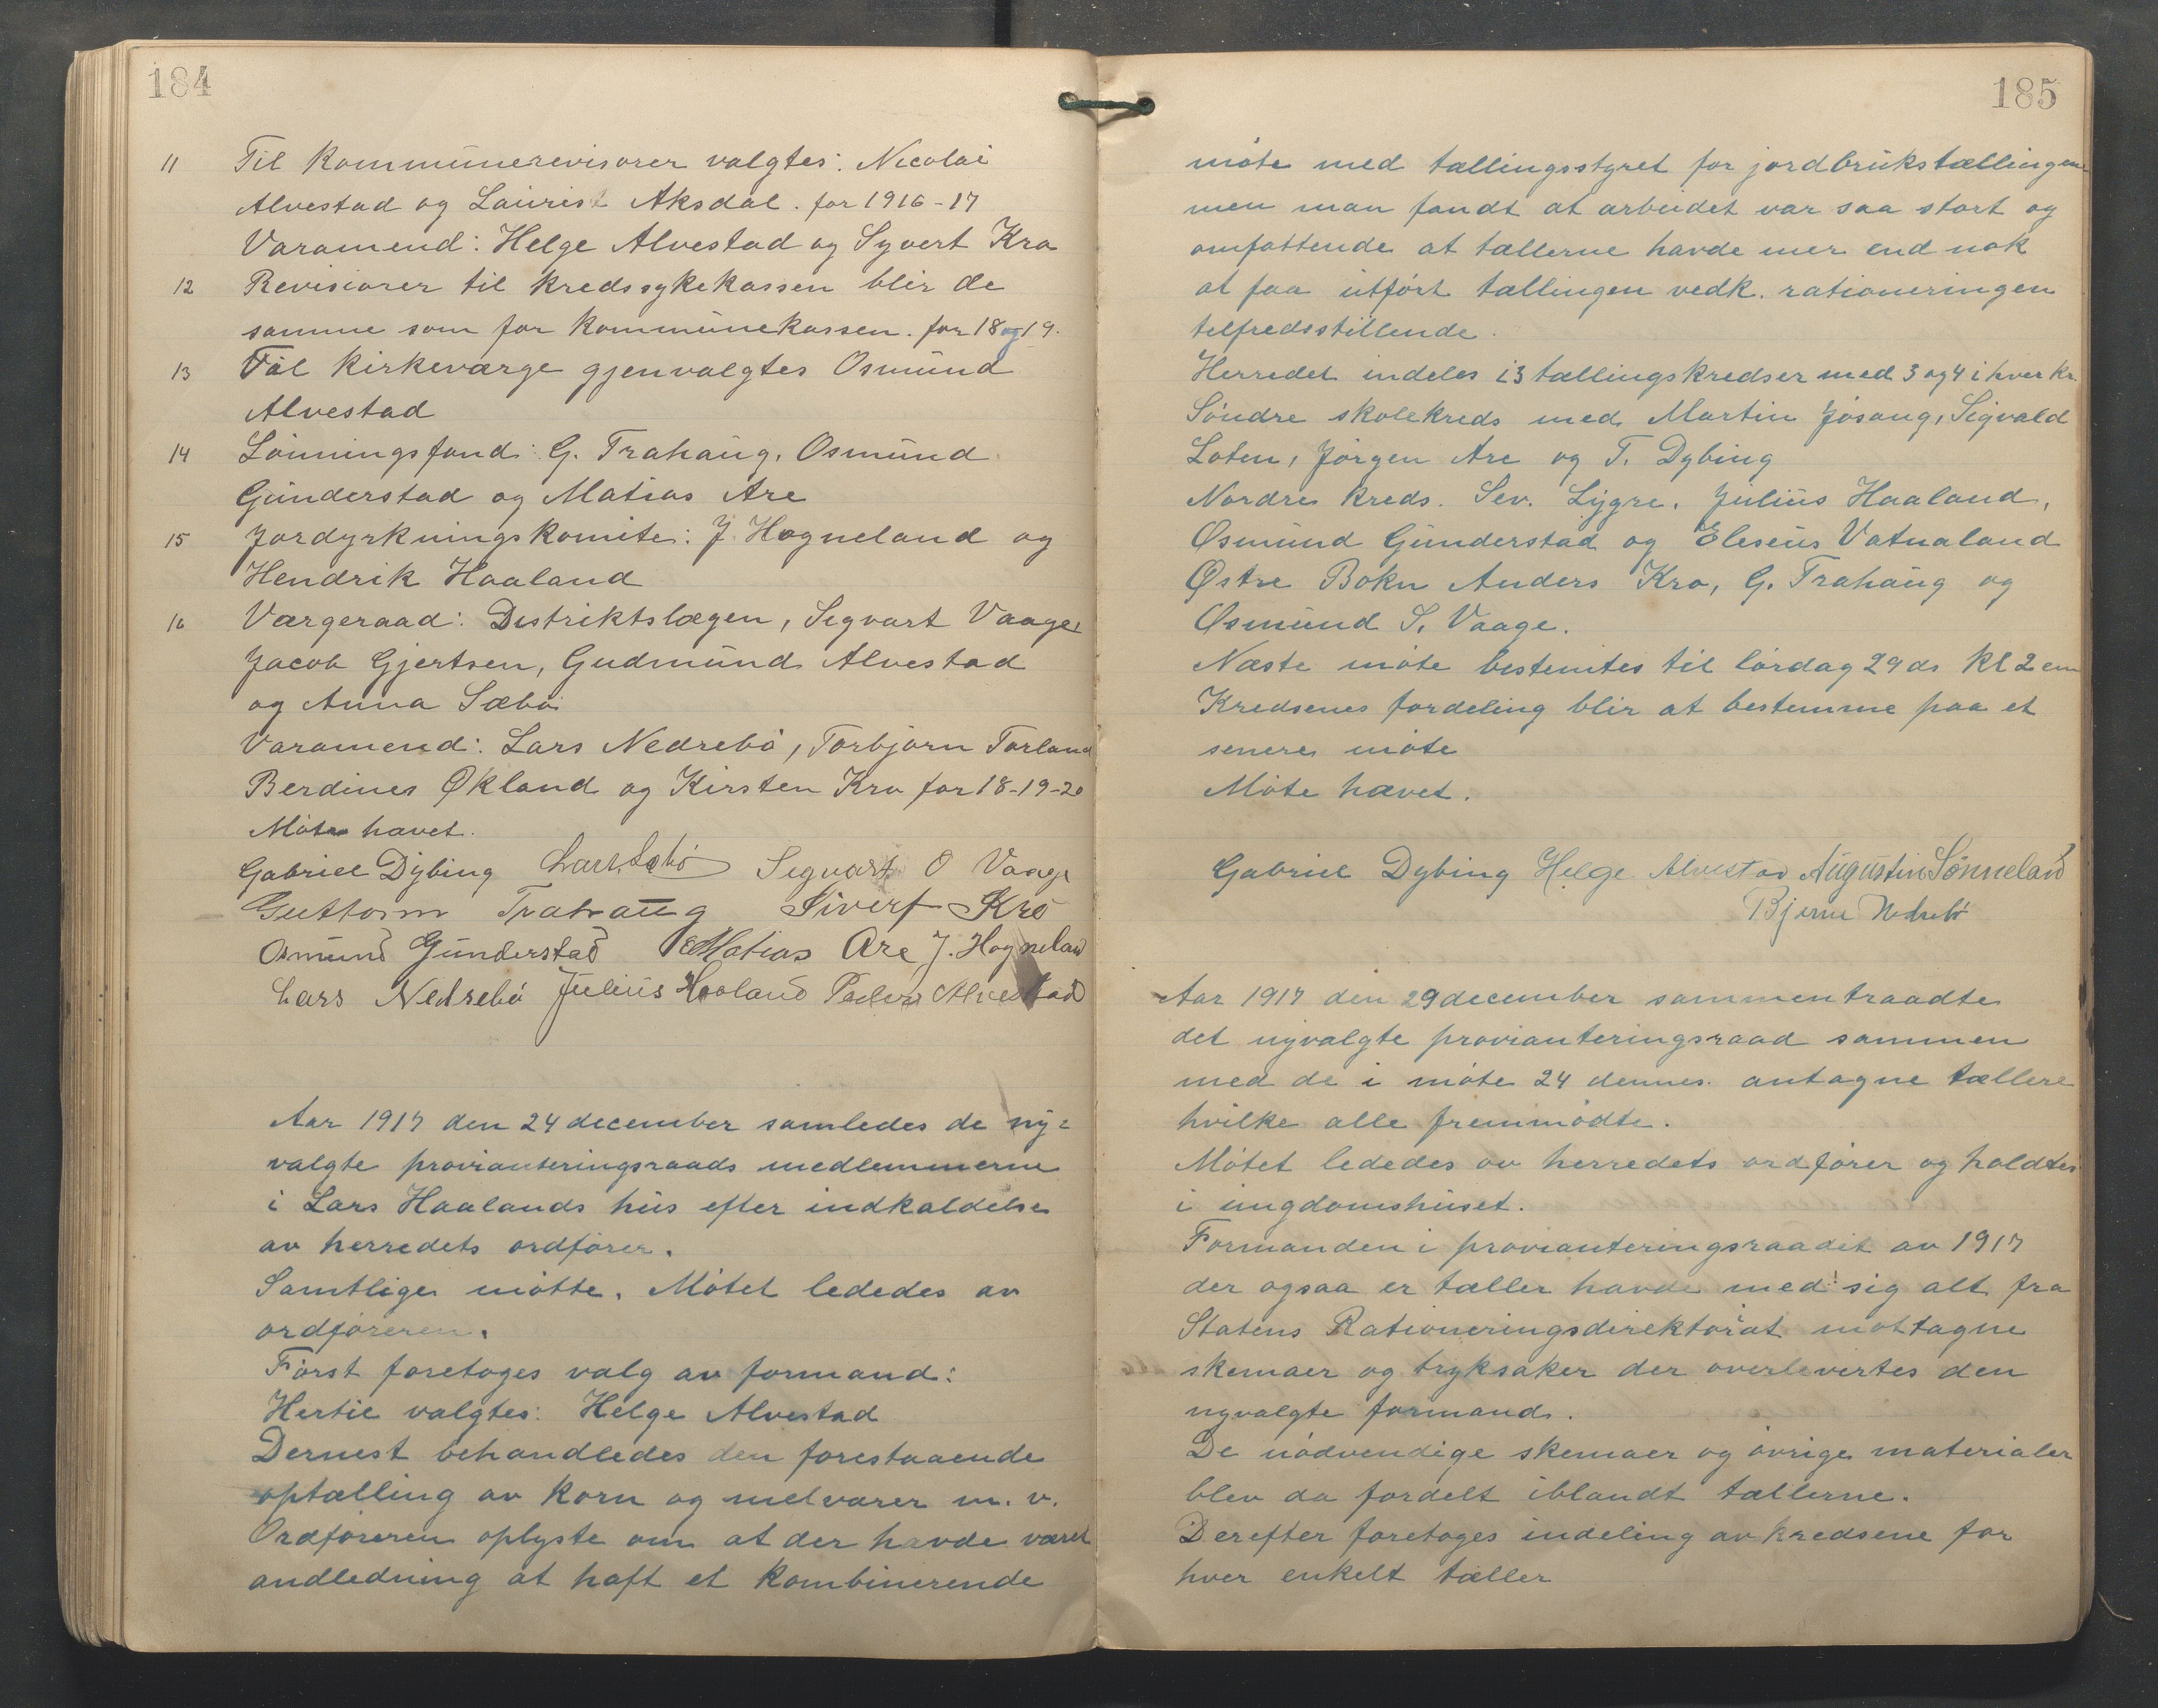 184
11 Til kommunerevisorer valgtes: Nicolai
Alvestad og Laurist Aksdal. for 1916-17
Varamend: Helge Alvestad og Syvert Kro
12 Revisiorer til kredssykekassen blir de
samme som for kommunekassen. for 18 og 19.
13 Til kirkeværge gjenvalgtes Osmund
Alvestad
14 Lønningsfond: G. Trahaug, Osmund
Gunderstad og Matias Are
15 Jordyrkningskomite: J. Hogneland og
Hendrik Haaland
16 Værgeraad: Distriktslægen, Sigvart Vaage,
Jacob Gjertsen, Gudmund Alvestad
og Anna Sæbø
Varamend: Lars Nedrebø, Torbjørn Torland
Berdines Økland og Kirsten Kro for 18-19-20
Møte hævet.
Gabriel Dybing Lars Sebø Segvart O Vaage
Guttorm Trahaug Sivert Kro
Osmund Gunderstad Matias Are J. Hogneland
Lars Nedrebø Julius Haaland Peder Alvestad
Aar 1917 den 24 december samledes de ny=
valgte provianteringsraads medlemmerne
i Lars Haalands hus efter indkaldelse
av herredets ordfører.
Samtlige møtte. Møtet lededes av
ordføreren.
Først foretoges valg av formand:
Hertil valgtes: Helge Alvestad
Dernest behandledes den forestaaende
optælling av korn og melvarer m. v.
Ordføreren oplyste om at der havde været
andledning at haft et kombinerende
185
møte med tællingsstyret for jordbrukstællingen
men man fandt at arbeidet var saa stort og
omfattende at tællerne havde mer end nok
at faa utført tællingen vedk. rationeringen
telfredsstillende.
Herredet indeles i 3 tællingskredser med 3 og 4 i hver kr.
Søndre skolekreds med Martin Jøsang, Sigvald
Loten, Jørgen Are og T. Dybing
Nordre kreds. Sev. Lygre. Julius Haaland,
Osmund Gunderstad og Eleseus Vatnaland
Østre Bokn Anders Kro, G. Trahaug og
Osmund S. Vaage.
Næste møte bestemtes til lørdag 29 ds kl 2 em
Kredsenes fordeling blir at bestemme paa et
senere møte
Møte hævet.
Gabriel Dybing Helge Alvestad Augustin Sønneland
Bjerne Nedrebø
Aar 1917 den 29 december sammentraadte
det nyvalgte provianteringsraad sammen
med de i møte 24 dennes. antagne tællere
hvilke alle fremmødte.
Møtet lededes av herredets ordfører og holdtes
i ungdomshuset.
Formanden i provianteringsraadet av 1917
der ogsaa er tæller havde med sig alt fra
Statens Rationeringsdirektorat mottagne
skemaer og tryksaker der overlevertes den
nyvalgte formand.
De nødvendige skemaer og øvrige materialer
blev da fordelt iblandt tællerne.
Derefter foretoges indeling av kredsene for
hver enkelt tæller